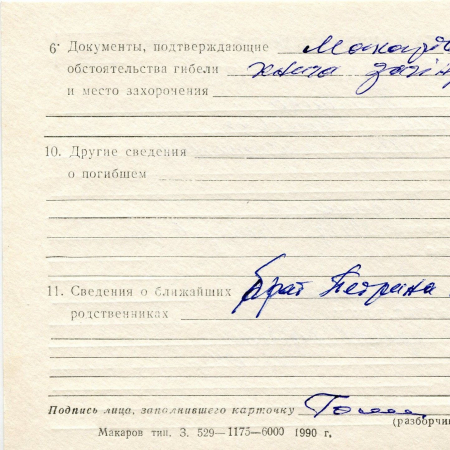 6· Документы, подтверждающие
обстоятельства гибели книга
и место захоронения
10. Другие сведения
о погибшем
11. Сведения о ближайших брат Петрина
родственниках
Подпись лица, заполнившего карточку
(разборчи
Макаров тип. З. 529—1175—6000 1990 г.